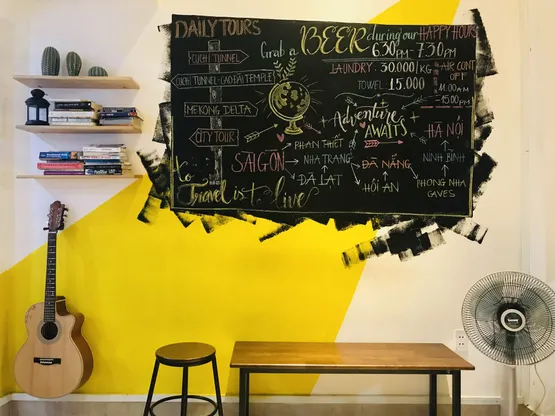 DAILY TOURS
CUCHI TUNNEL
CUCHI TUNNEL-CAO ĐÀI TEMPLE
MEKONG DELTA
CITY TOUR
Grab a BEER during our HAPPY HOURS
6:30PM - 7:30PM
LAUNDRY: 30.000/KG
TOWEL: 15.000
AIR CONT
OFF
11:00AM
15:00PM
Adventure
AWAITS
SAIGON
PHAN THIẾT
NHA TRANG
ĐÀ LẠT
ĐÀ NẴNG
HỘI AN
HÀ NỘI
NINH BÌNH
PHONG NHA
CAVES
to Travel is to live